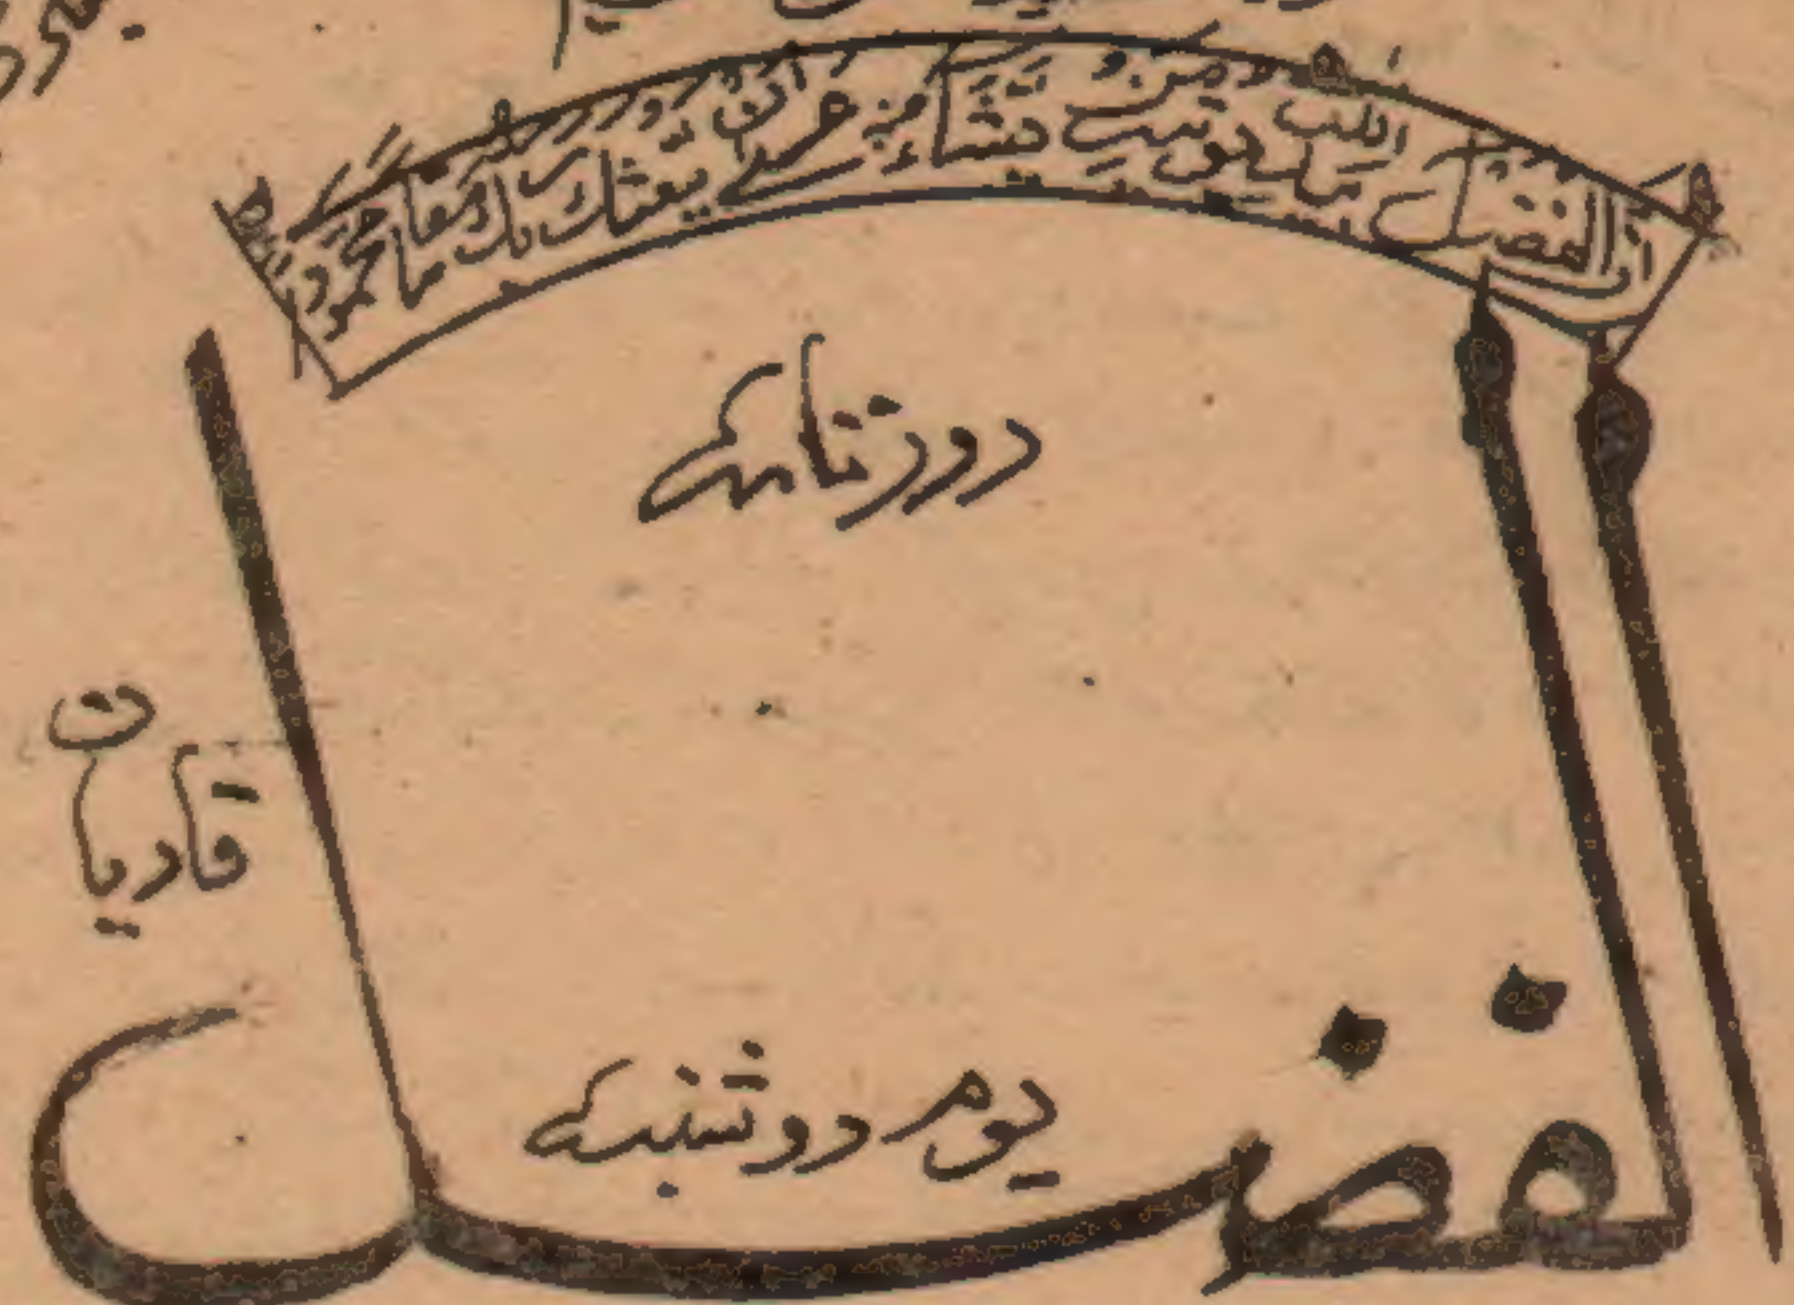 ان الفضل بید اللہ یوتیہ من یشاء عسیٰ ان یبعثک ربک مقاما محمودا
روزنامہ
الفضل
قادیان
یوم دوشنبہ